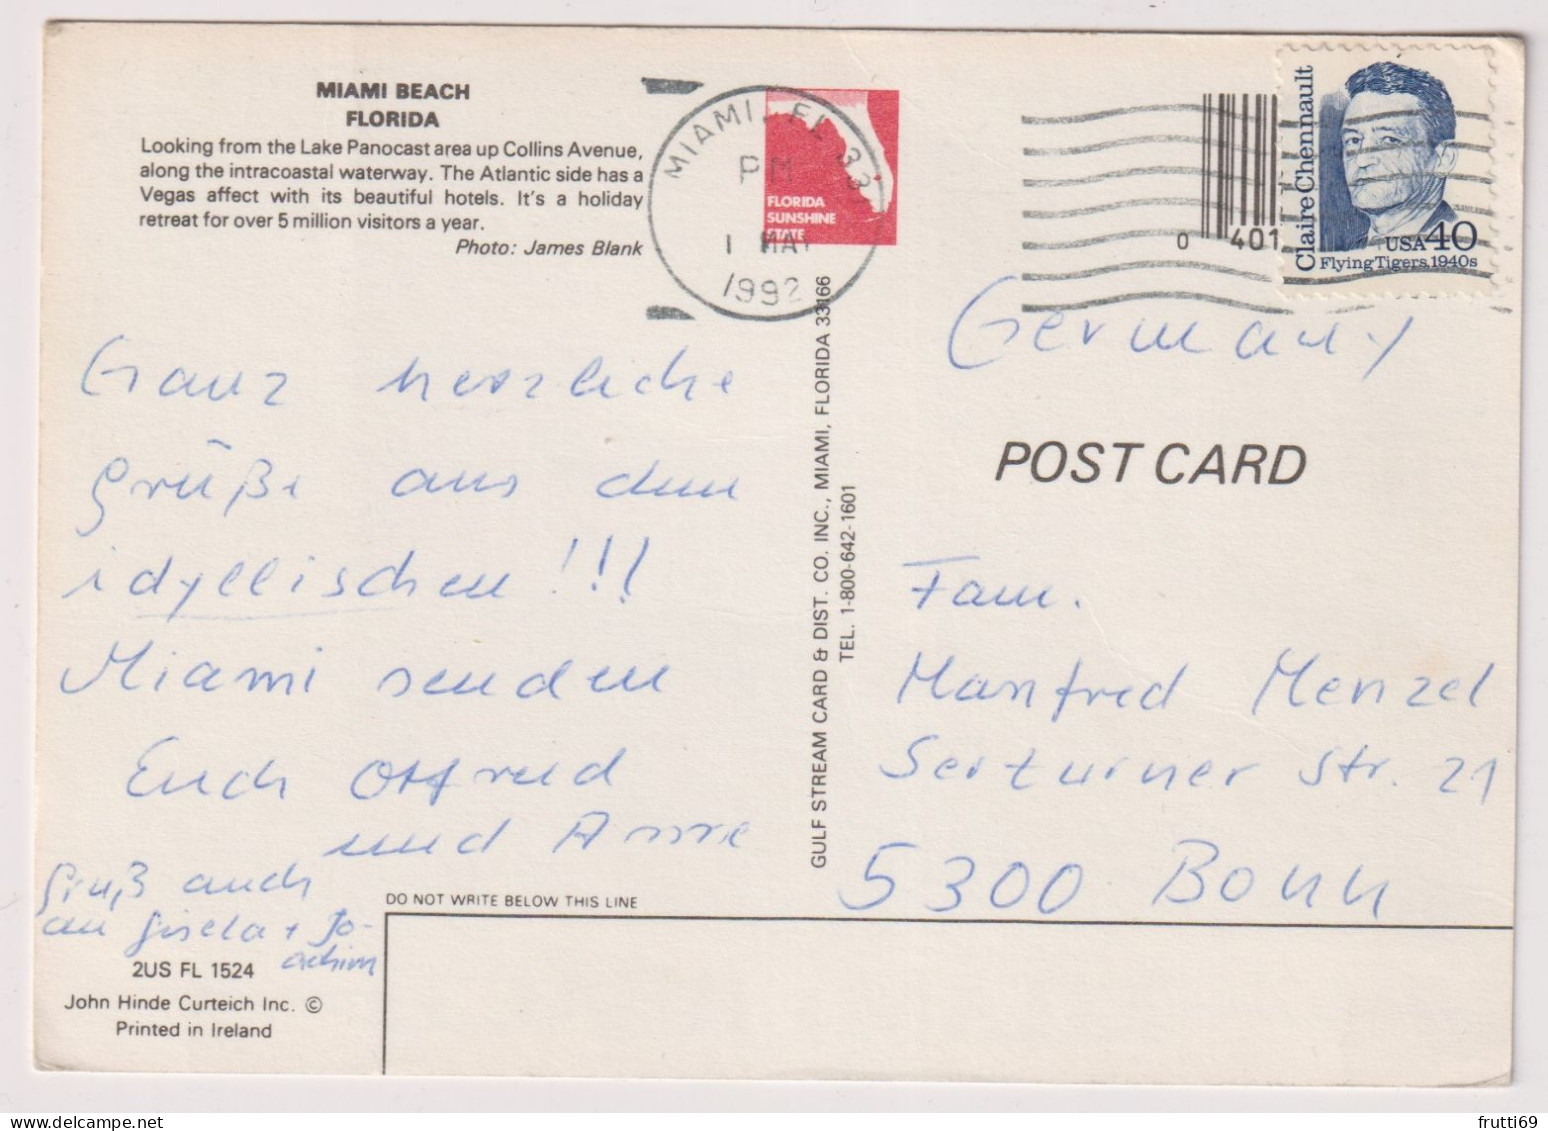 MIAMI BEACH
FLORIDA
Looking from the Lake Panocast area up Collins Avenue,
along the intracoastal waterway. The Atlantic side has a
Vegas affect with its beautiful hotels. It's a holiday
retreat for over 5 million visitors a year.
Photo: James Blank
MIAMI, FL 33
PM
1 MAY
1992
FLORIDA
SUNSHINE
STATE
0 401
Claire Chennault
USA 40
Flying Tigers, 1940s
Ganz herzliche
Grüße aus dem
idyllischen!!!
Miami senden
Euch Ottfried
und Anne
Gruß auch
an Gisela + Jo-
achim
GULF STREAM CARD & DIST. CO. INC., MIAMI, FLORIDA 33166
TEL. 1-800-642-1601
Germany
POST CARD
Fam.
Manfred Menzel
Serturner Str. 21
5300 Bonn
DO NOT WRITE BELOW THIS LINE
2US FL 1524
John Hinde Curteich Inc. ©
Printed in Ireland
frutti69